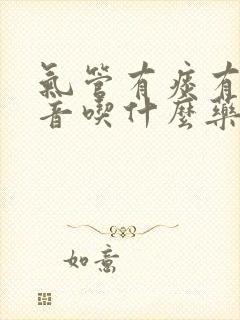 氣管有痰有
音喫什麼藥
如意